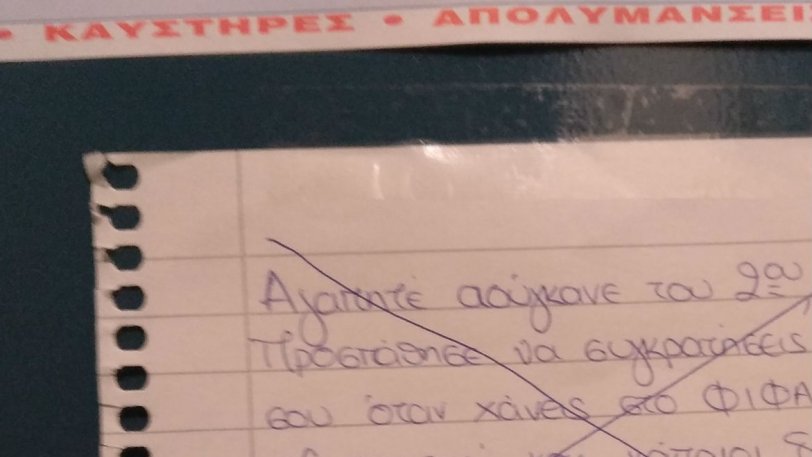 • ΚΑΥΣΤΗΡΕΣ • ΑΠΟΛΥΜΑΝΣΕΙ
Αγαπητέ ασύγκανε του 2ου
Προσπάθησε να συγκρατήσεις
σου όταν χάνεις στο ΦΙΦΑ
κάποιοι